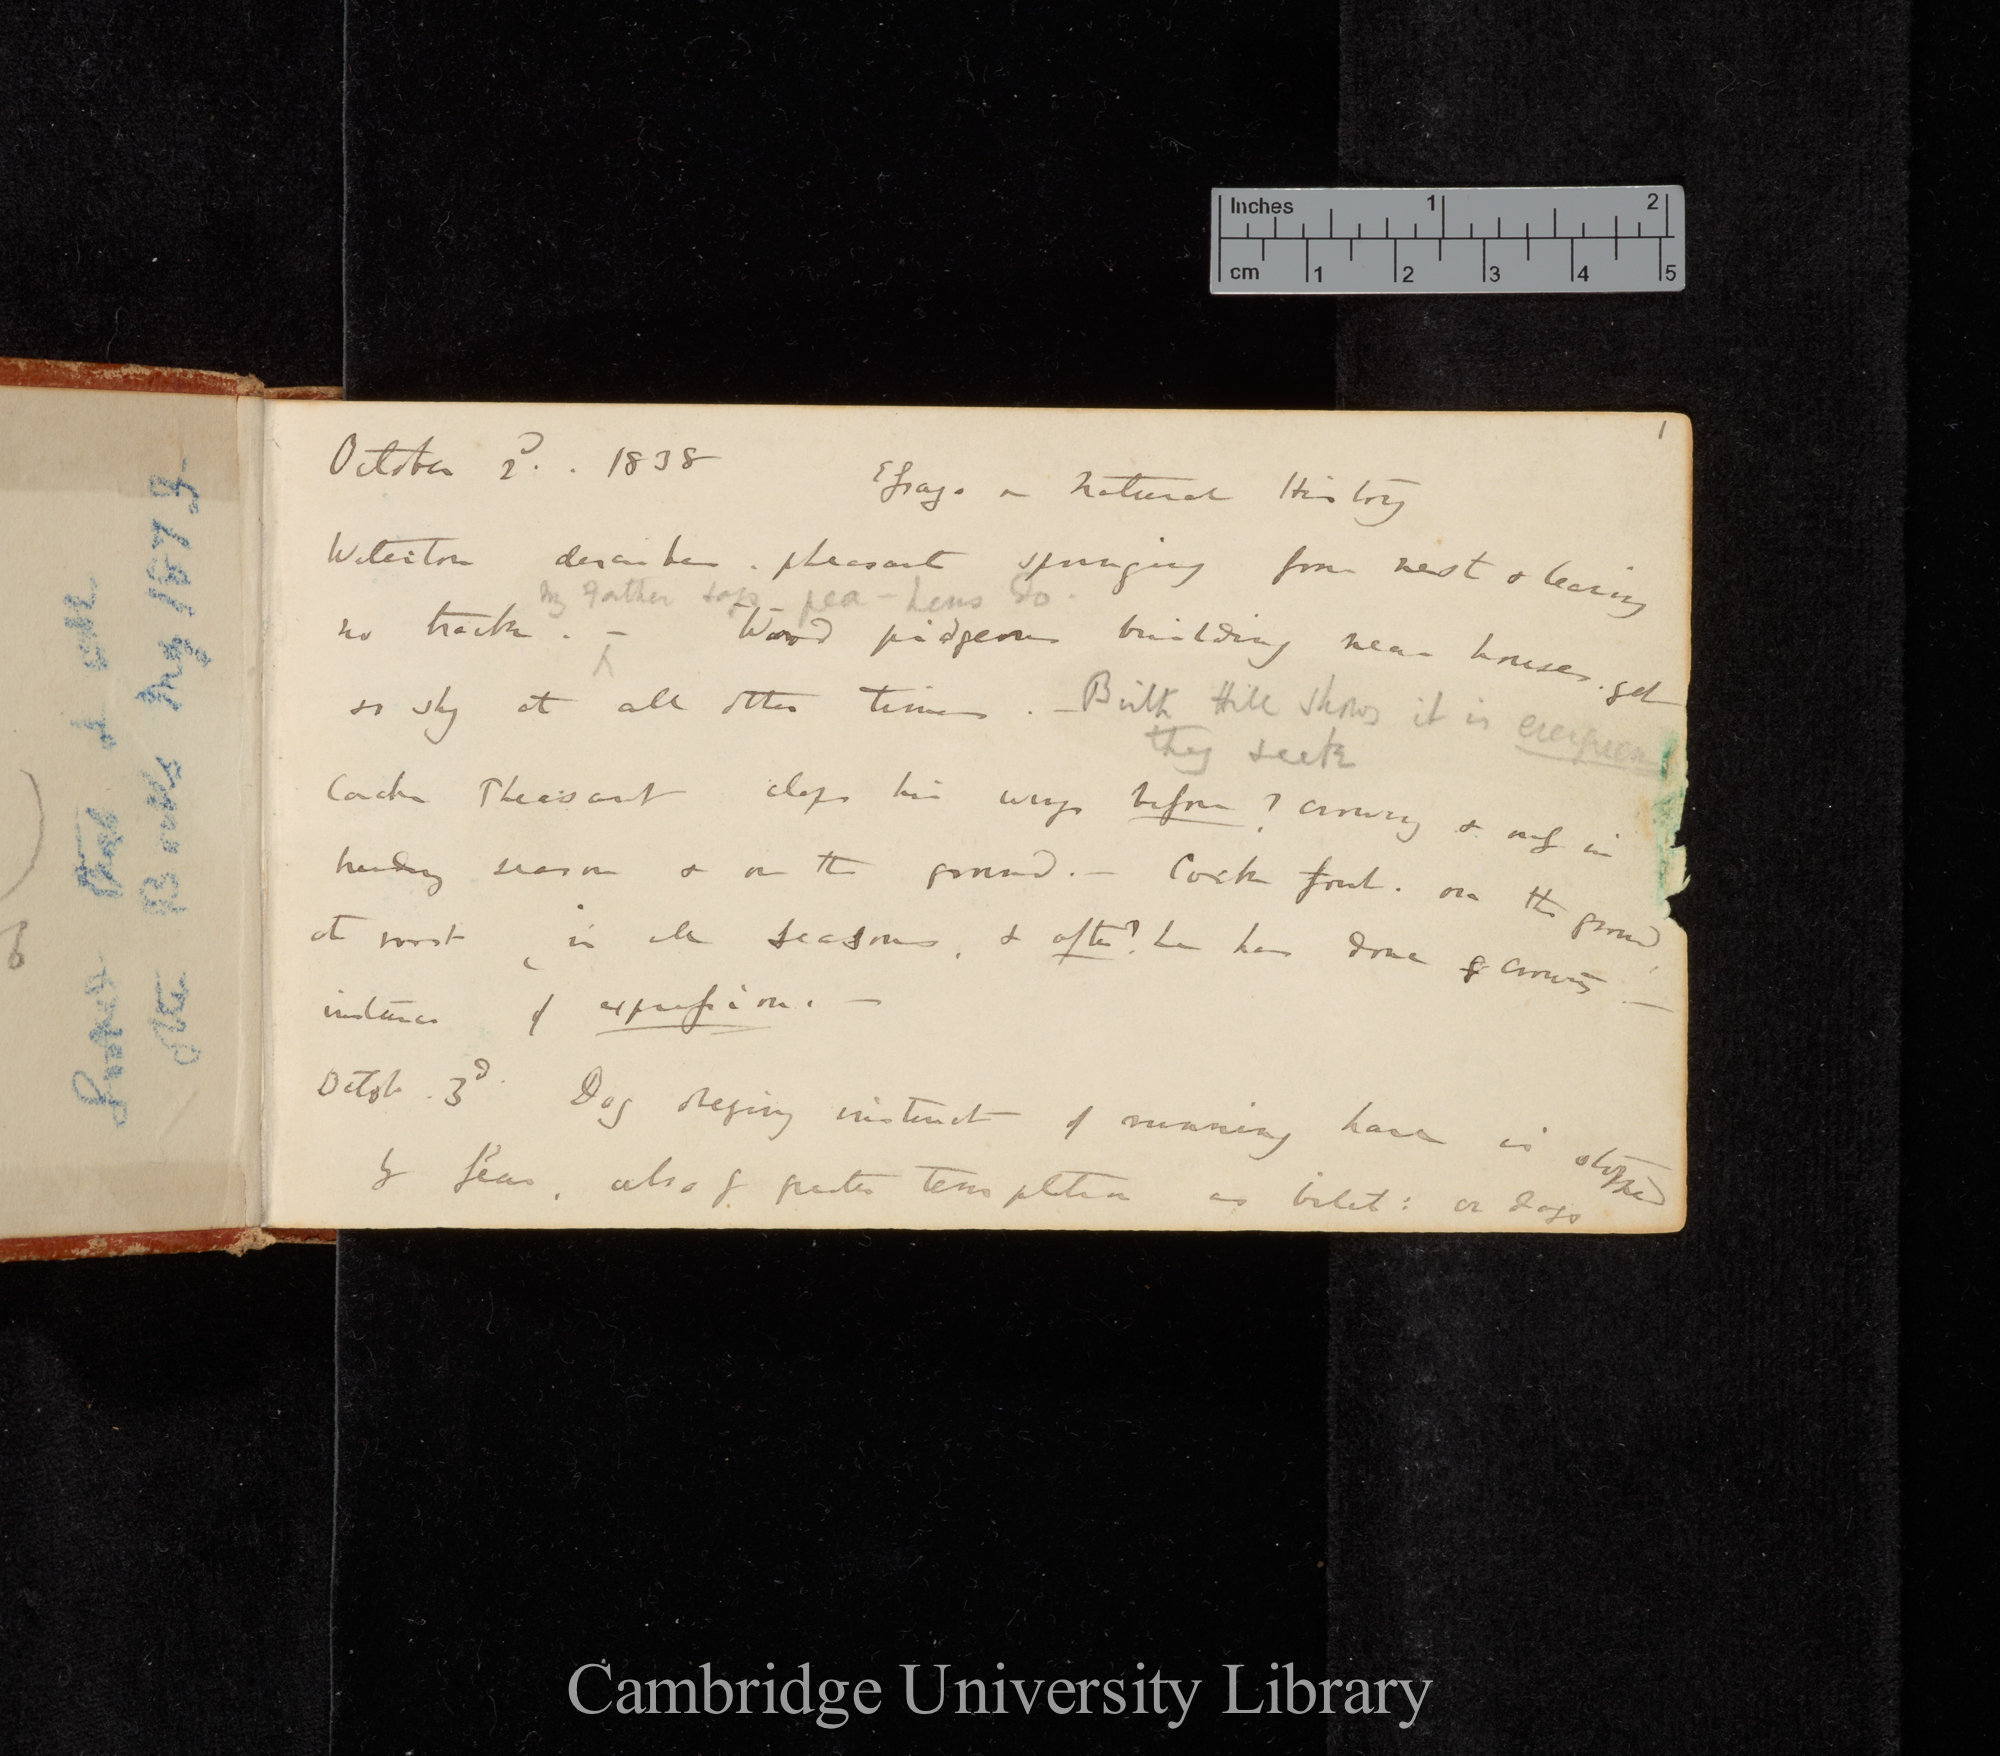 Inches 1 2
cm 1 2 3 4 5
1
October 2d. . 1838
Essays on Natural History
Waterton describes . pheasant springing from nest & leaving
my Father says pea-hens do.
no tracks. — Wood pidgeons building near houses. yet
so shy at all other times. —
Birth Hill shows it is evergreen
they seek
Cock Pheasant claps his wings before ? crowing & only in
breeding season & on the ground. — Cock fowl. on the ground
at roost in all seasons, & after? he has done crowing. —
instances of expression. —
Octob. 3d. Dog obeying instinct of running hare is stopped
by fleas, also by greater temptation as bitch: or dogs
after B ends Aug 1873
Cambridge University Library